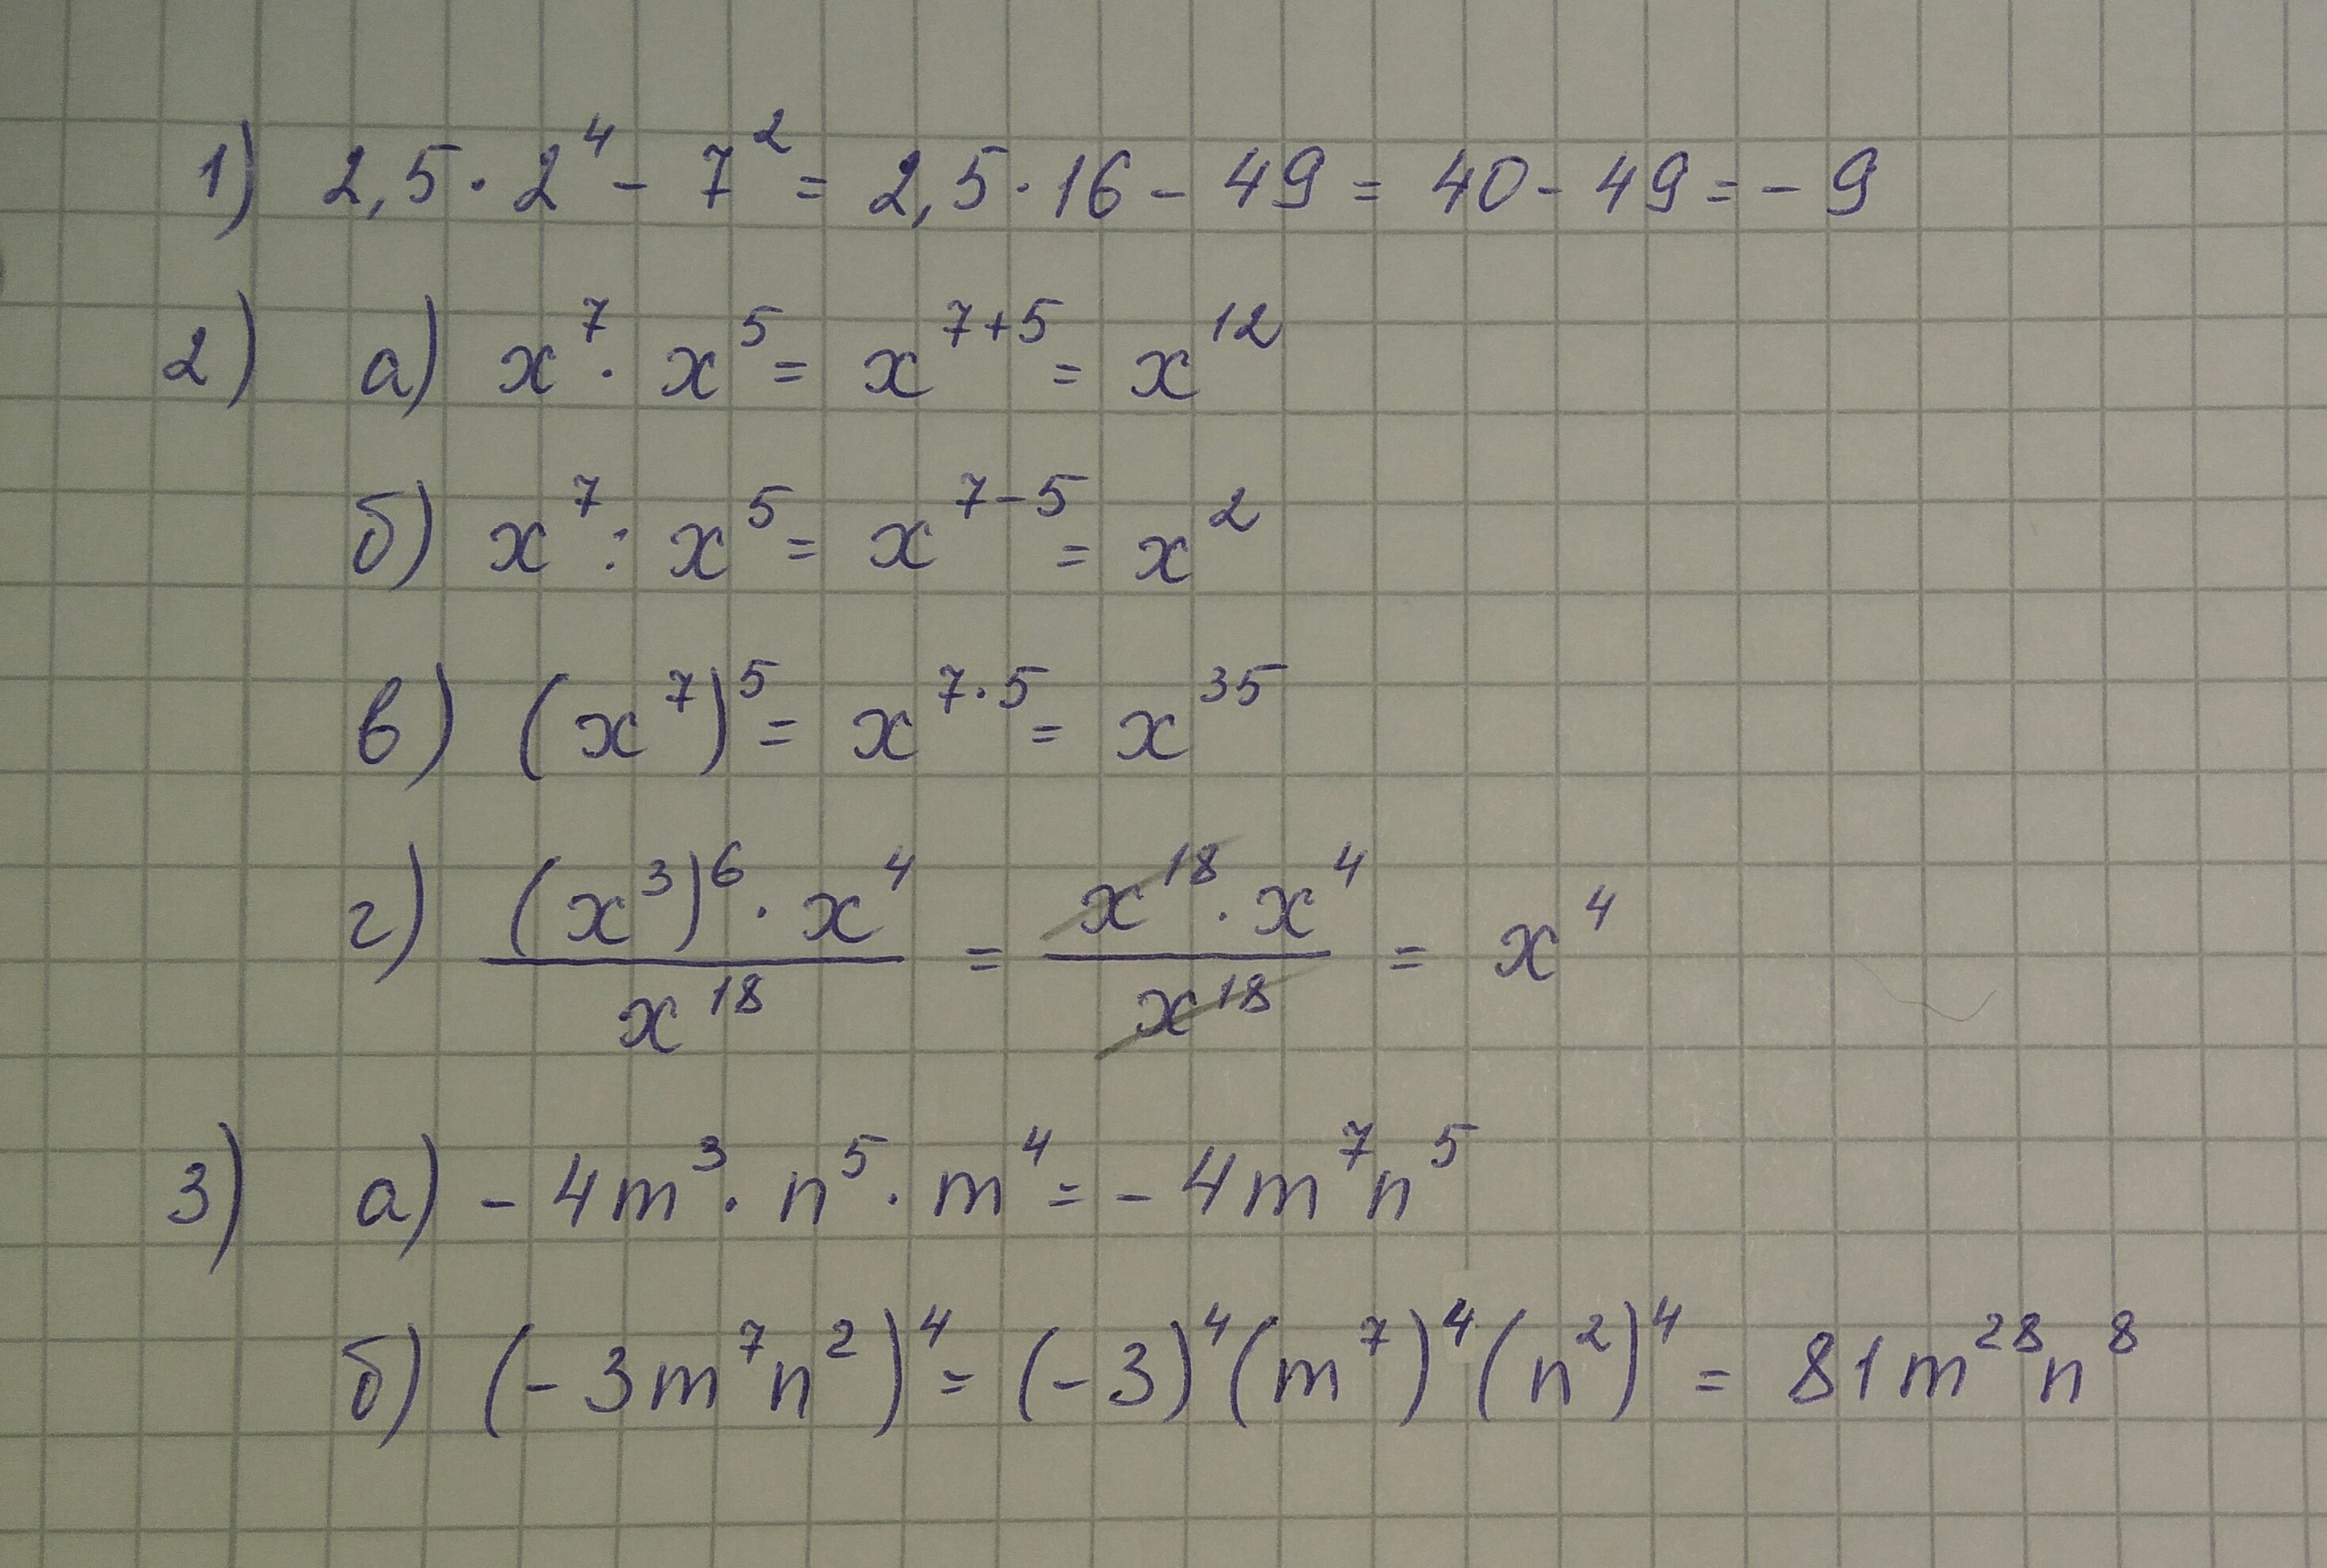 1) 2,5 · 2⁴ - 7² = 2,5 · 16 - 49 = 40 - 49 = - 9
2) а) x⁷ · x⁵ = x⁷⁺⁵ = x¹²
б) x⁷ : x⁵ = x⁷⁻⁵ = x²
в) (x⁷)⁵ = x^(7·5) = x³⁵
г) (x³)⁶ · x⁴ / x¹⁸ = x¹⁸ · x⁴ / x¹⁸ = x⁴
3) а) - 4m³ · n⁵ · m⁴ = - 4m⁷n⁵
б) (- 3m⁷n²)⁴ = (- 3)⁴(m⁷)⁴(n²)⁴ = 81m²⁸n⁸